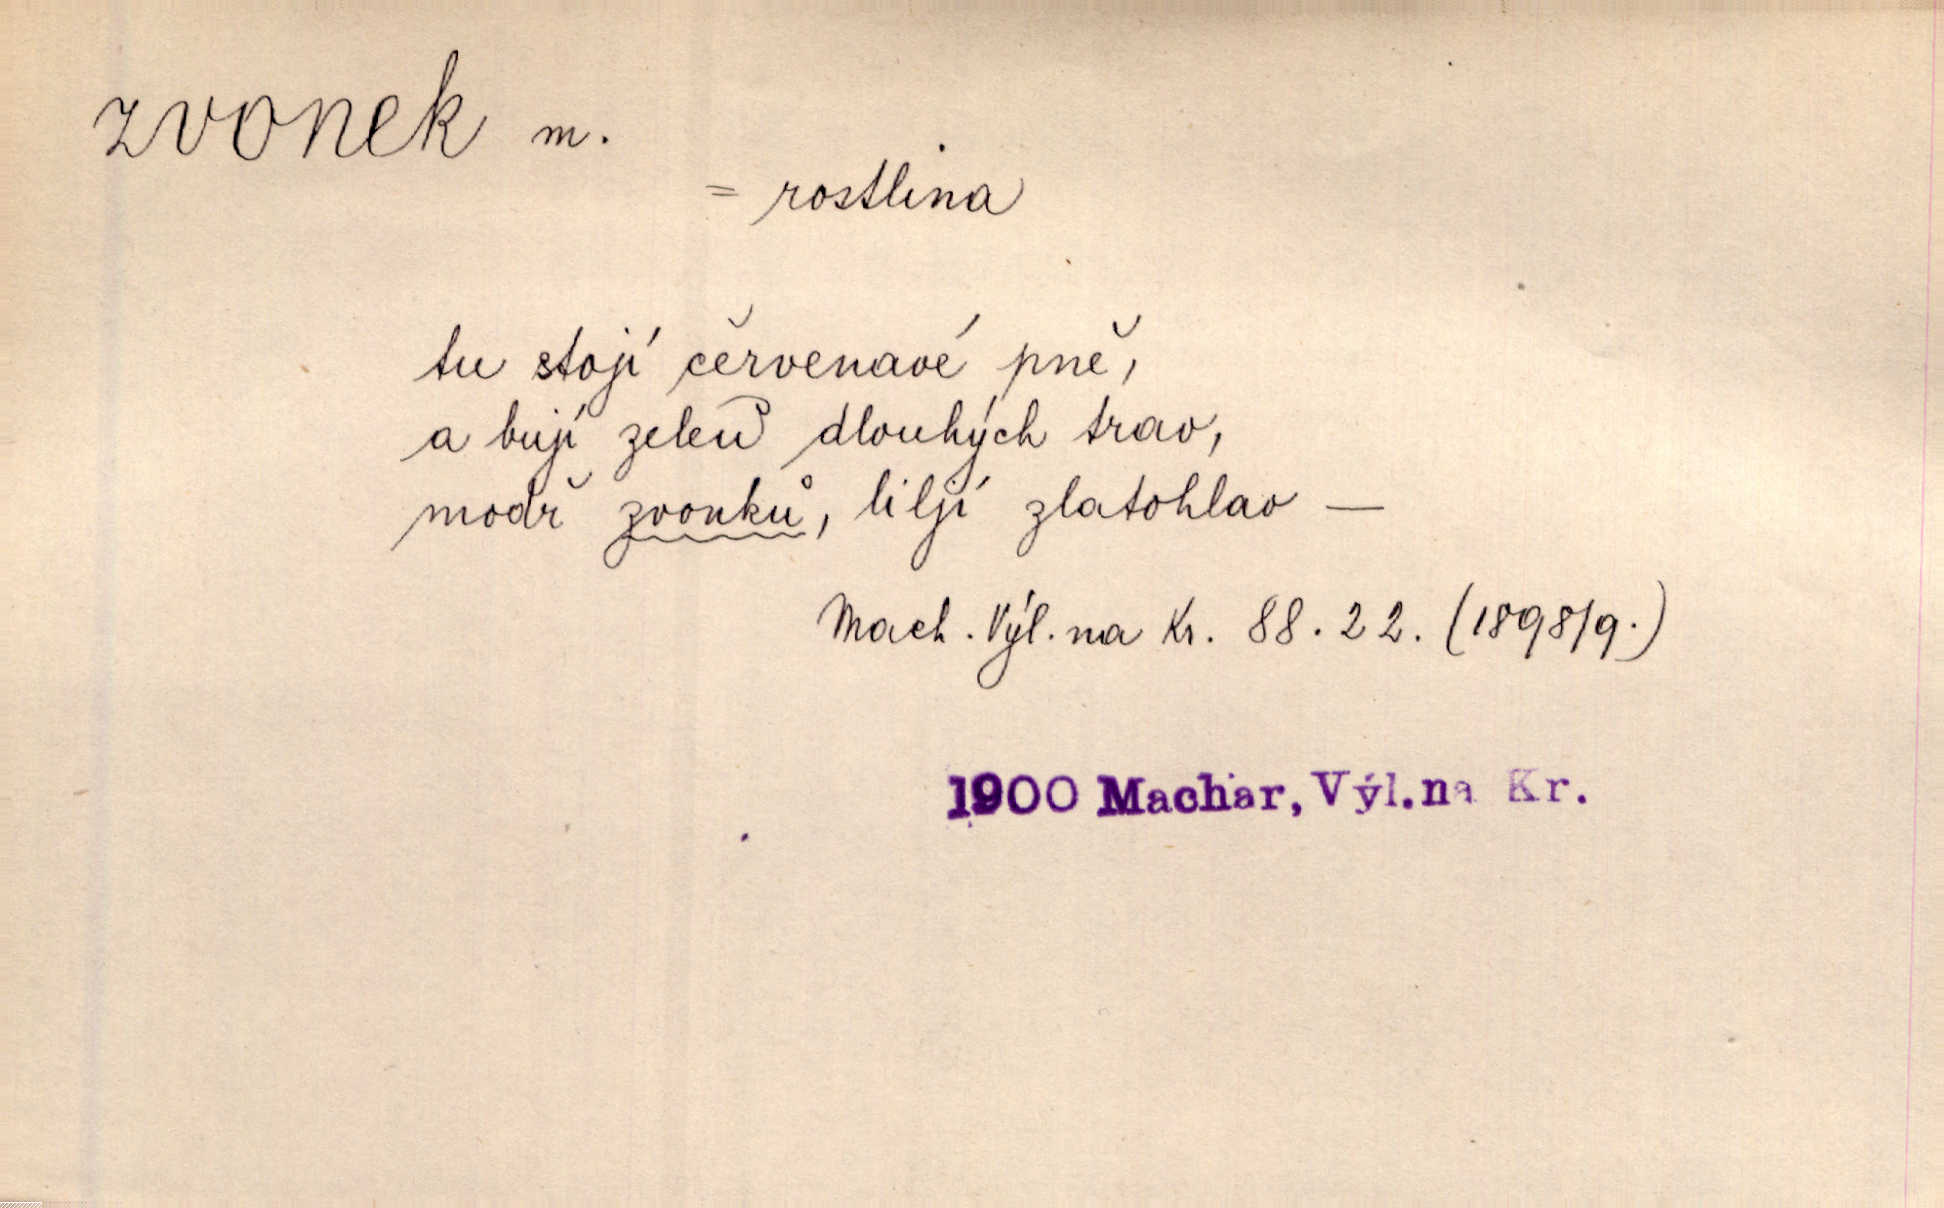 zvonek m.
= rostlina
tu stojí červenavé pně,
a bují zeleň dlouhých trav,
modř zvonků, liljí zlatohlav —
Mach. Výl. na Kr. 88. 22. (1898/9.)
1900 Machar, Výl. na Kr.